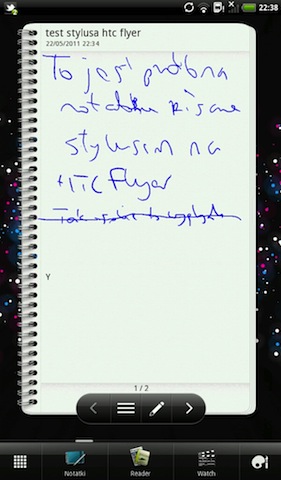 22:38
test stylusa htc flyer
22/05/2011 22:34
To jest próbna
notatka pisana
stylusem na
HTC Flyer
Tak to wygląda
Y
1 / 2
Notatki
Reader
Watch